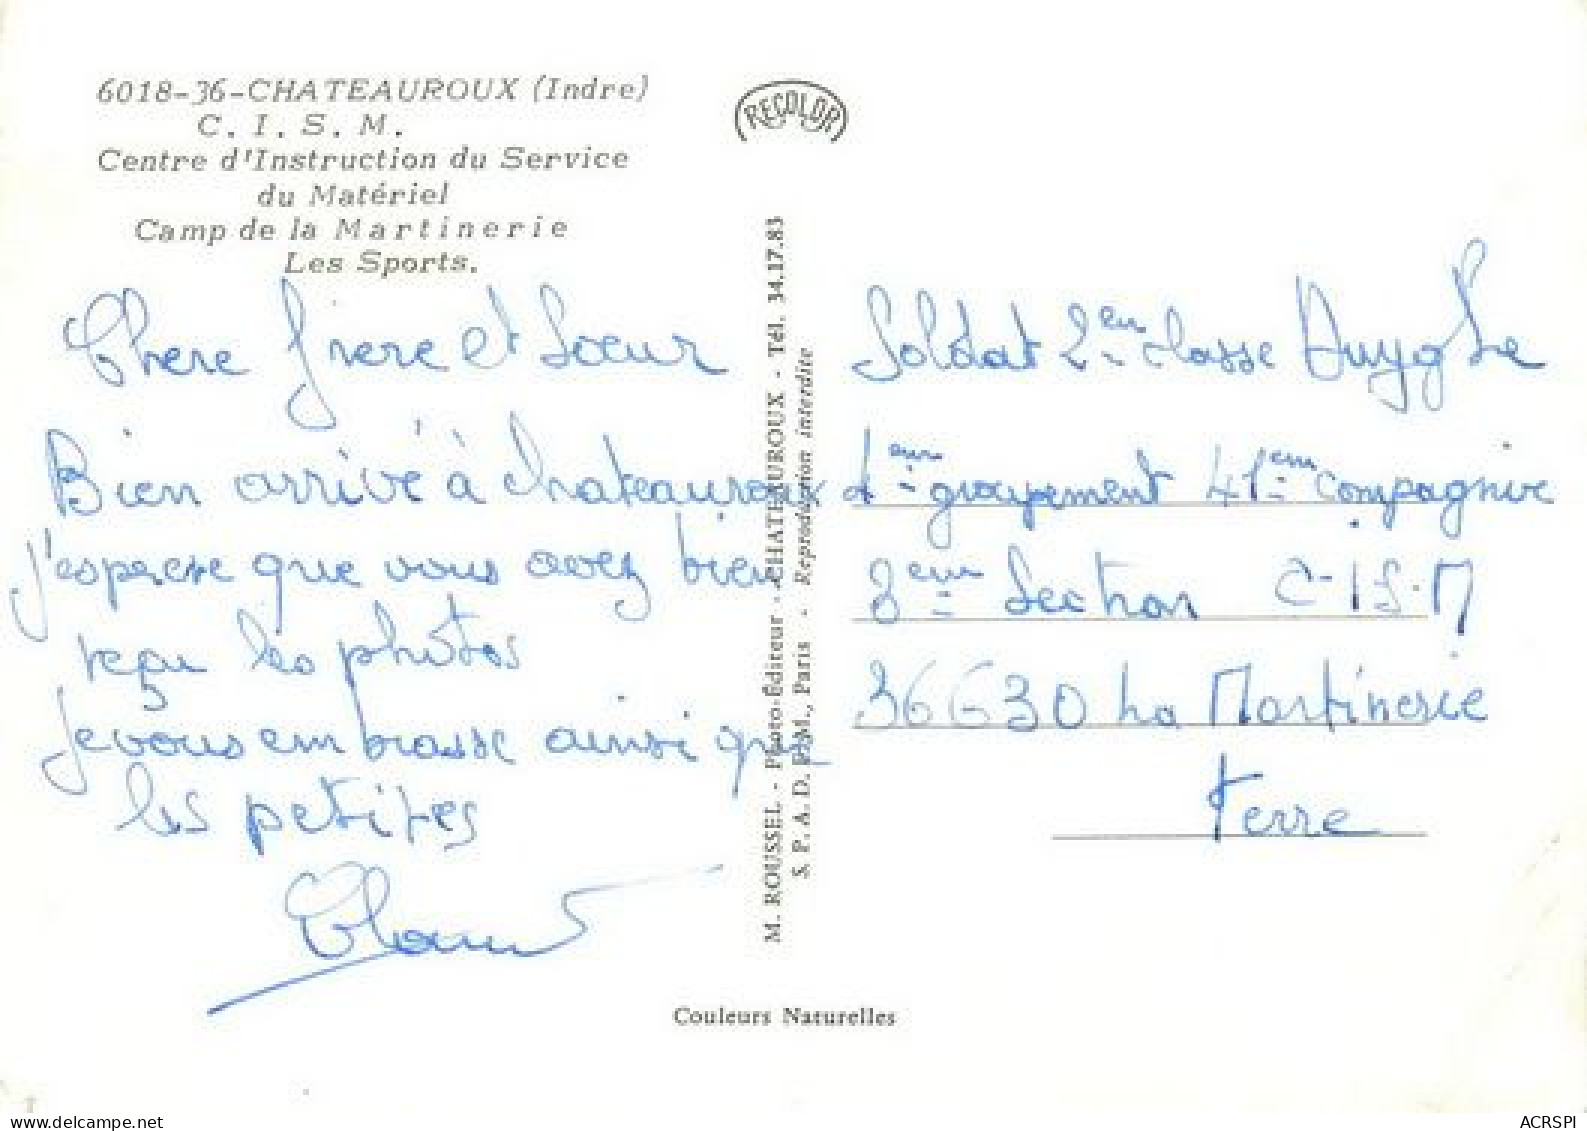 6018-36-CHATEAUROUX (Indre)
C. I. S. M.
Centre d'Instruction du Service
du Matériel
Camp de la Martinerie
Les Sports.
RECOLOR
Chere frere et Soeur
Bien arrivé à Chateauroux
j'esperere que vous avez bien
reçu les photos
je vous embrasse ainsi que
les petites
M. ROUSSEL - Photo-Éditeur - CHATEAUROUX - Tél. 34.17.83
S. P. A. D. E. M., Paris - Reproduction interdite
Soldat 2em classe Huyghe
1er groupement 41em compagnie
3em Section C.I.S.M
36630 La Martinerie
Terre
Couleurs Naturelles
www.delcampe.net
ACRSPI